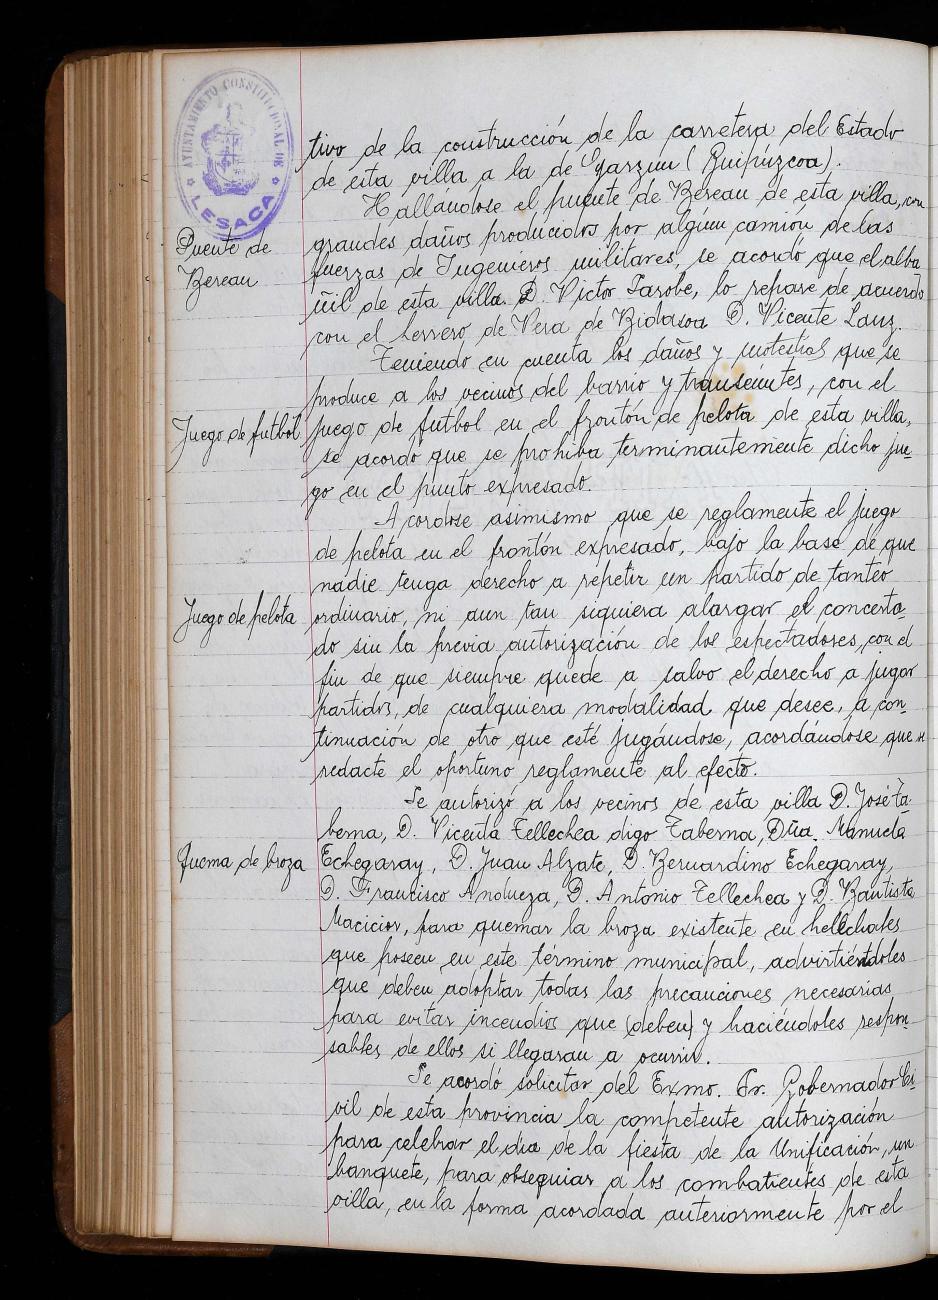 AYUNTAMIENTO CONSTITUCIONAL DE
LESACA
tivo de la construcción de la carretera del Estado
de esta villa a la de Oyarzun (Guipúzcoa).
Hallandose el puente de Bereau de esta villa, con
Puente de
Bereau
grandes daños producidos por algún camión de las
fuerzas de Ingenieros militares, se acordó que el alba
ñil de esta villa D. Victor Sarobe, lo repase de acuerdo
con el herrero de Vera de Bidasoa D. Vicente Lanz.
Teniendo en cuenta los daños y molestias que se
produce a los vecinos del barrio y transeuntes, con el
Juego de futbol
juego de futbol en el frontón de pelota de esta villa,
se acordó que se prohiba terminantemente dicho jue-
go en el punto expresado.
Acordose asimismo que se reglamente el juego
de pelota en el frontón expresado, bajo la base de que
nadie tenga derecho a repetir un partido de tanteo
Juego de pelota
ordinario, ni aun tan siquiera alargar el concerta-
do sin la previa autorización de los espectadores, con el
fin de que siempre quede a salvo el derecho a jugar
partidos, de cualquiera modalidad que desee, a con-
tinuación de otro que esté jugándose, acordándose que se
redacte el oportuno reglamente al efecto.
Se autorizó a los vecinos de esta villa D. José Ta
berna, D. Vicenta Tellechea digo Taberna, Dña. Manuela
Quema de broza
Echegaray, D. Juan Alzate, D. Bernardino Echegaray,
D. Francisco Andueza, D. Antonio Tellechea y D. Bautista
Macicior, para quemar la broza existente en hellechales
que poseen en este término municipal, advirtiéndoles
que deben adoptar todas las precauciones necesarias
para evitar incendios que (deben) y haciéndoles respon-
sables de ellos si llegaran a ocurrir.
Se acordó solicitar del Exmo. Sr. Gobernador Ci-
vil de esta provincia la competente autorización
para celebrar el día de la fiesta de la Unificación, un
banquete, para obsequiar a los combatientes de esta
villa, en la forma acordada anteriormente por el